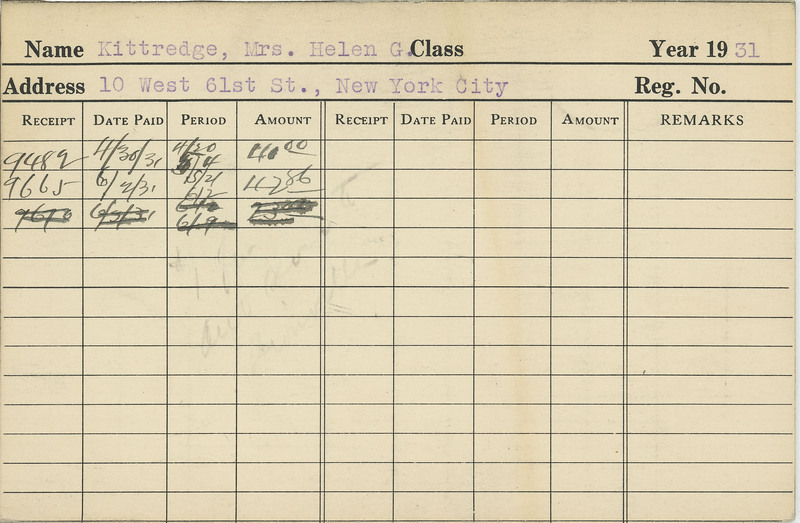 Name Kittredge, Mrs. Helen G. Class Year 1931
Address 10 West 61st St., New York City Reg. No.
RECEIPT DATE PAID PERIOD AMOUNT RECEIPT DATE PAID PERIOD AMOUNT REMARKS
9482 4/30/31 4/30 40.00
5/14
9665 6/2/31 5/21 42.86
6/2